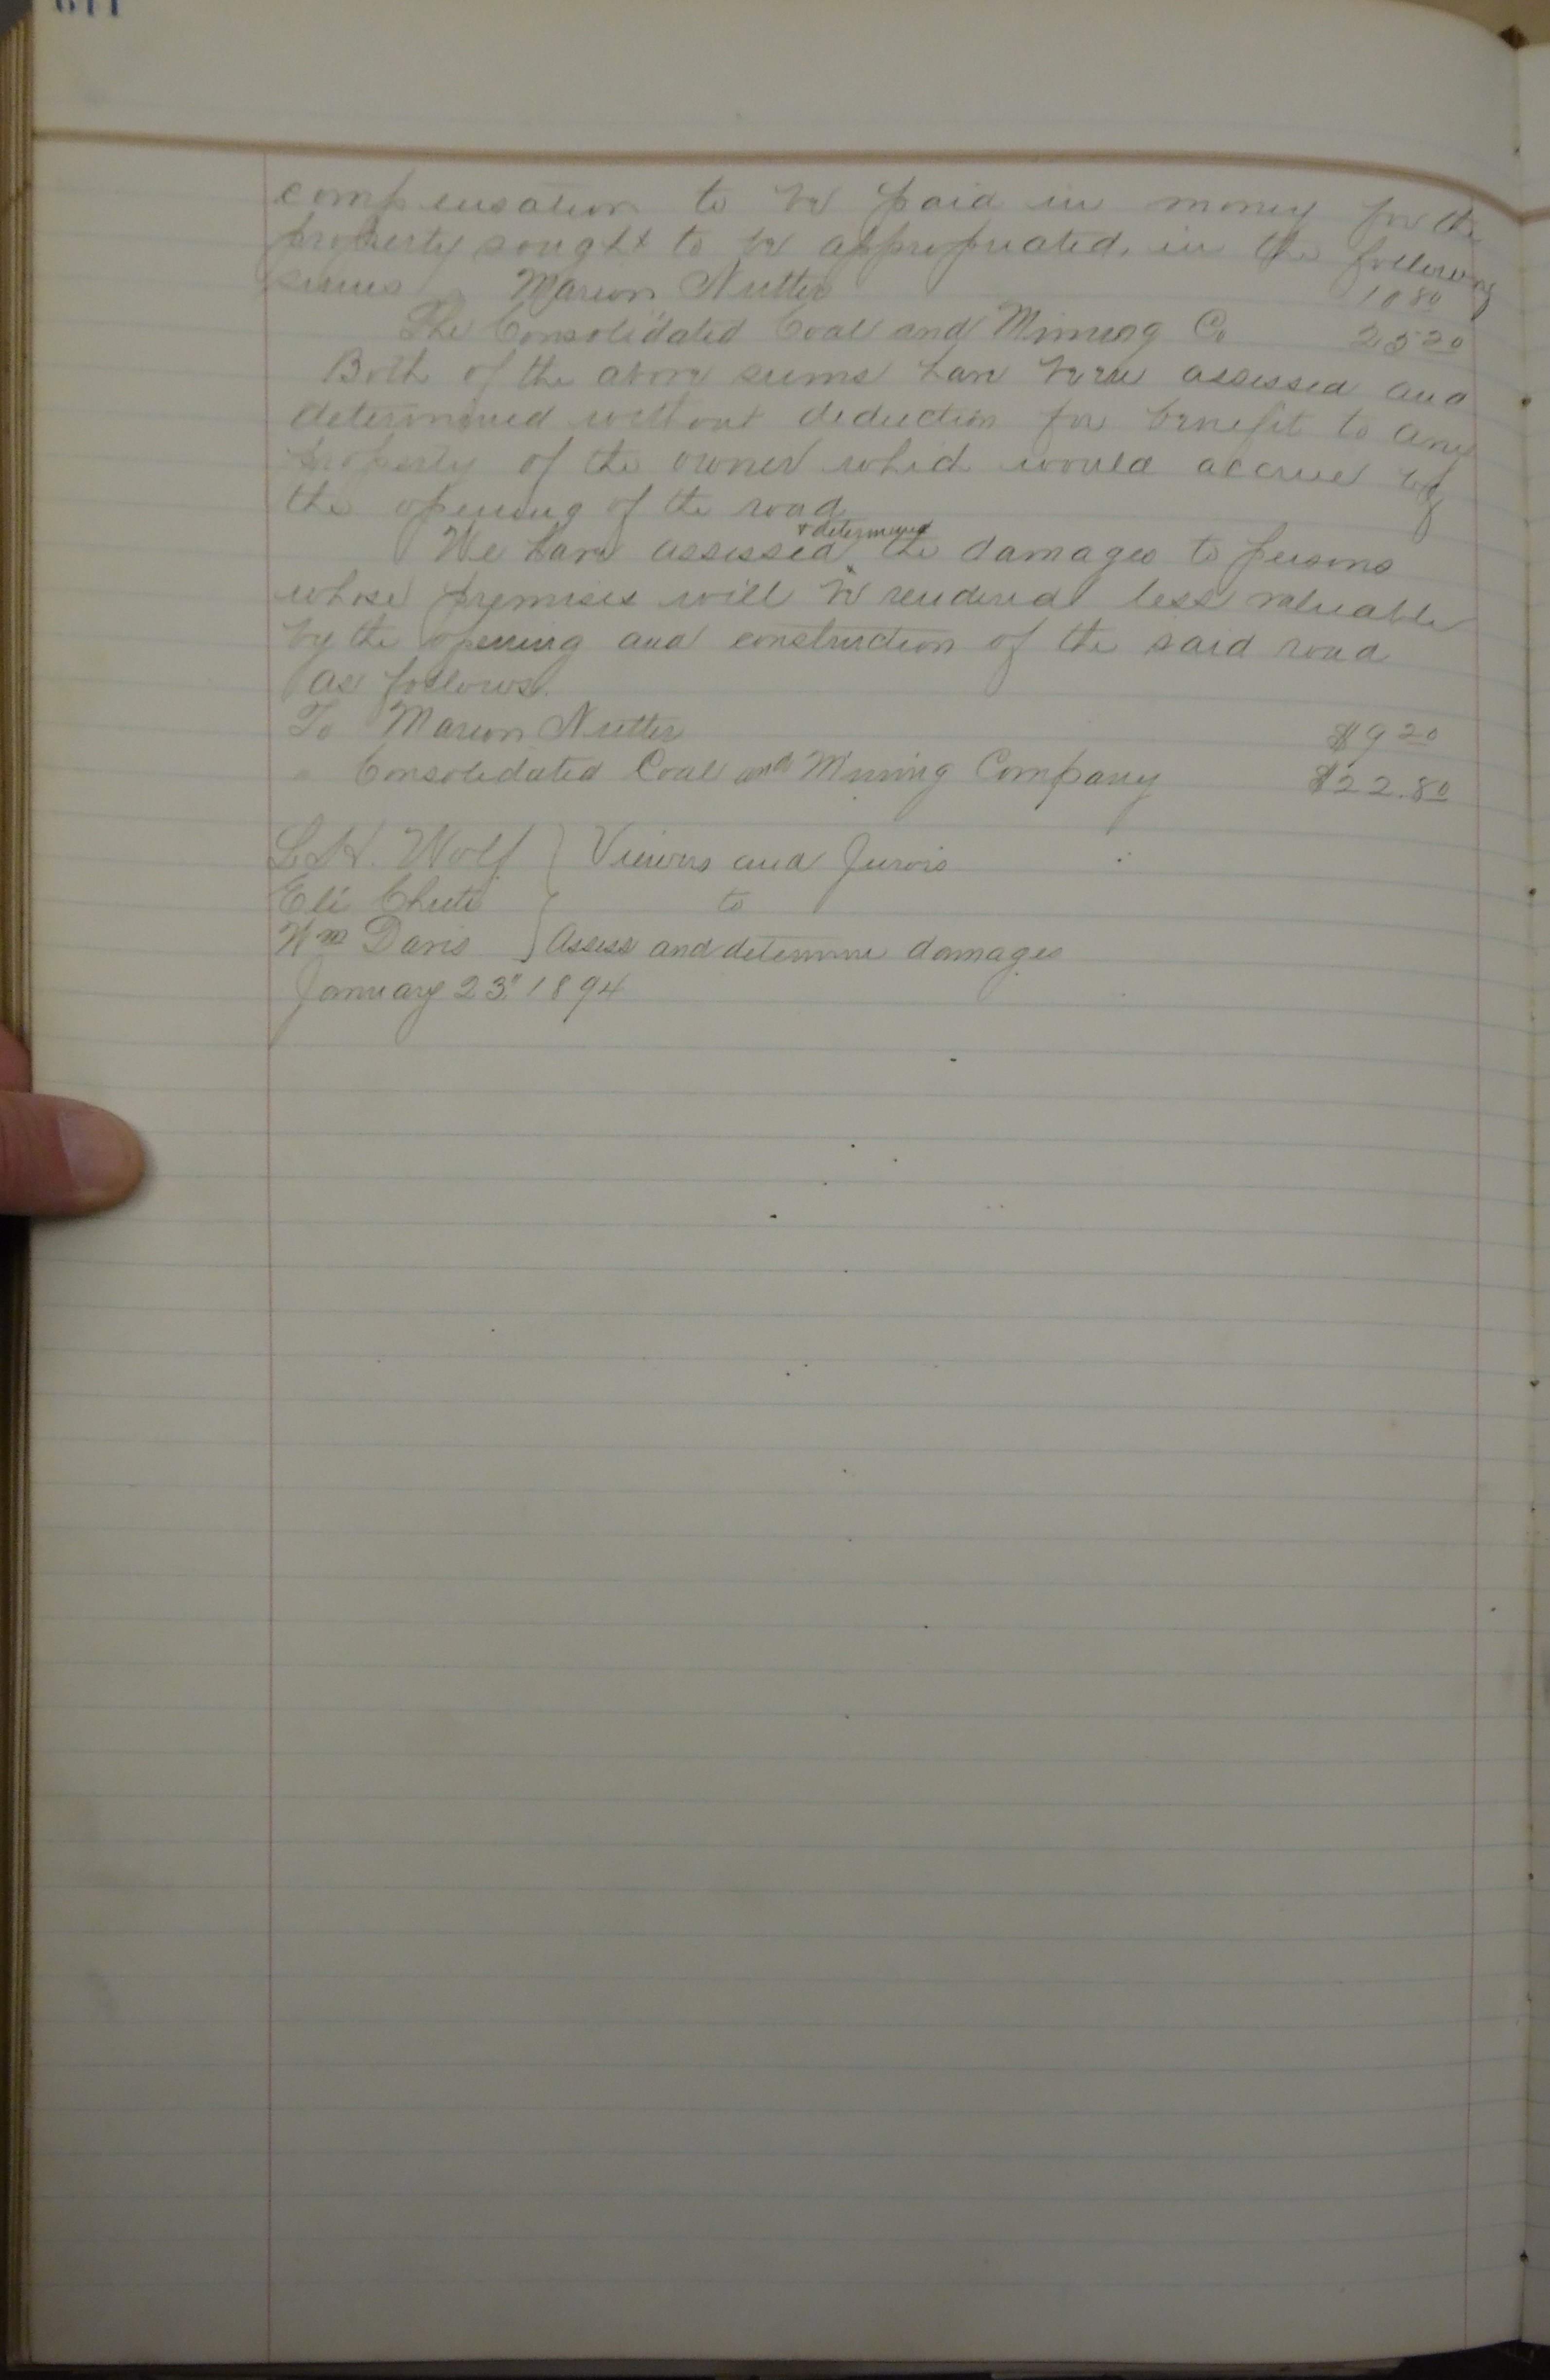 compensation to be paid in money for the
property sought to be appropriated, in the following
sums Marion Nutter 10 80
The Consolidated Coal and Mining Co 25 20
Both of the above sums have been assessed and
determined without deduction for benefit to any
property of the owner which would accrue by
the opening of the road
We have assessed & determined the damages to persons
whose premises will be rendered less valuable
by the opening and construction of the said road
as follows.
To Marion Nutter $9 20
" Consolidated Coal and Mining Company $22.80
L. H. Wolf } Viewers and Jurors
Eli Chute } to
Wm Davis } Assess and determine damages
January 23" 1894